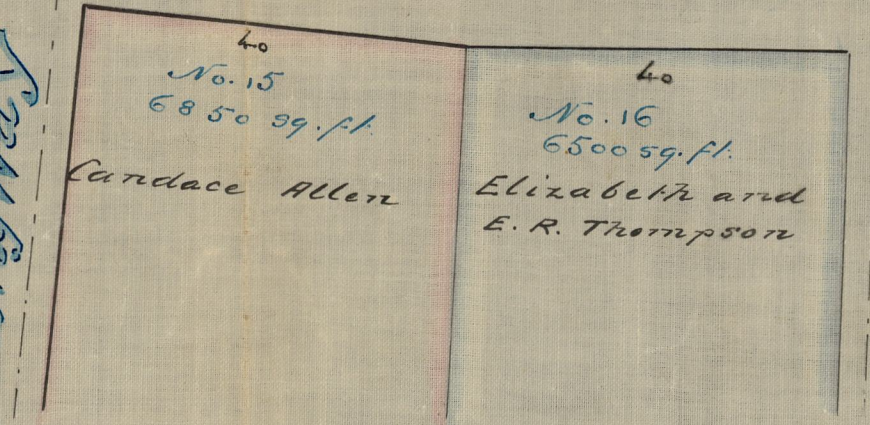 40
No. 15
6850 sq. ft.
Candace Allen
40
No. 16
6500 sq. ft.
Elizabeth and
E. R. Thompson